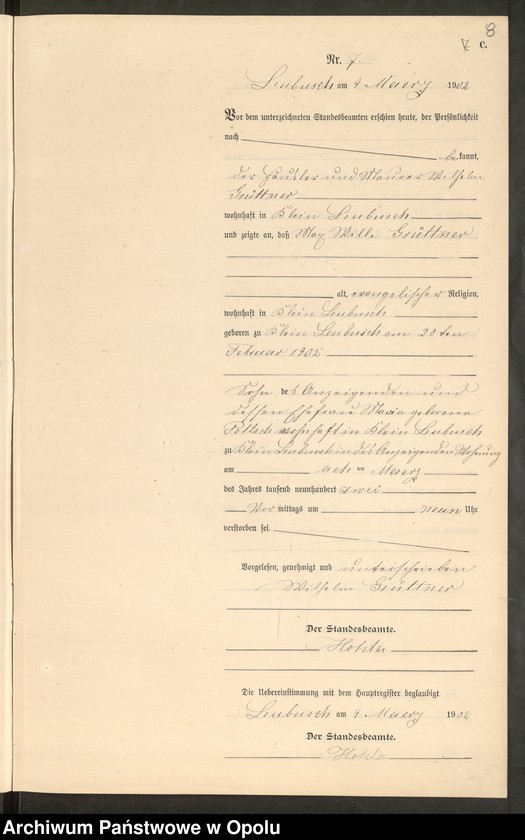 8
C.
Nr. 7.
Leubusch am 9 Maerz 1902
Vor dem unterzeichneten Standesbeamten erschien heute, der Persönlichkeit
nach
be kannt,
der Häusler und Maurer Wilhelm
Grüttner
wohnhaft in Klein Leubusch
und zeigte an, daß Max Willi Grüttner
alt, evangelischer Religion,
wohnhaft in Klein Leubusch
geboren zu Klein Leubusch am 20 ten
Februar 1902
Sohn des Anzeigenden und
dessen Ehefrau Maria geborene
wohnhaft in Klein Leubusch
zu Klein Leubusch in des Anzeigenden Wohnung
am acht ten Maerz
des Jahres tausend neunhundert zwei
Vor mittags um neun Uhr
verstorben sei.
Vorgelesen, genehmigt und unterschrieben
Wilhelm Grüttner
Der Standesbeamte.
Die Uebereinstimmung mit dem Hauptregister beglaubigt
Leubusch am 9 Maerz 1902
Der Standesbeamte.
Archiwum Państwowe w Opolu